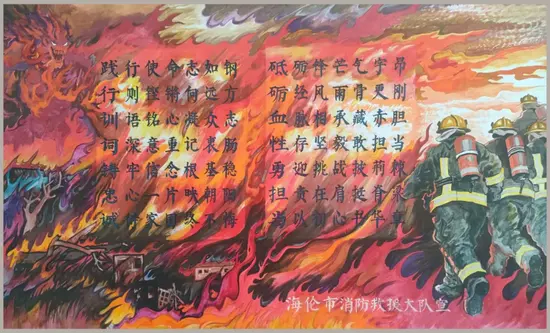 践行使命志如钢
行则铿锵向远方
训语铭心凝众志
词深意重记衷肠
铸牢信念根基稳
忠心一片映朝阳
诚 家国终不悔
砥砺锋芒气宇昂
砺经风雨骨更刚
血脉相承藏赤胆
性存坚毅敢担当
勇迎挑战披荆棘
担责在肩挺脊梁
当以初心书华章
海伦市消防救援大队宣